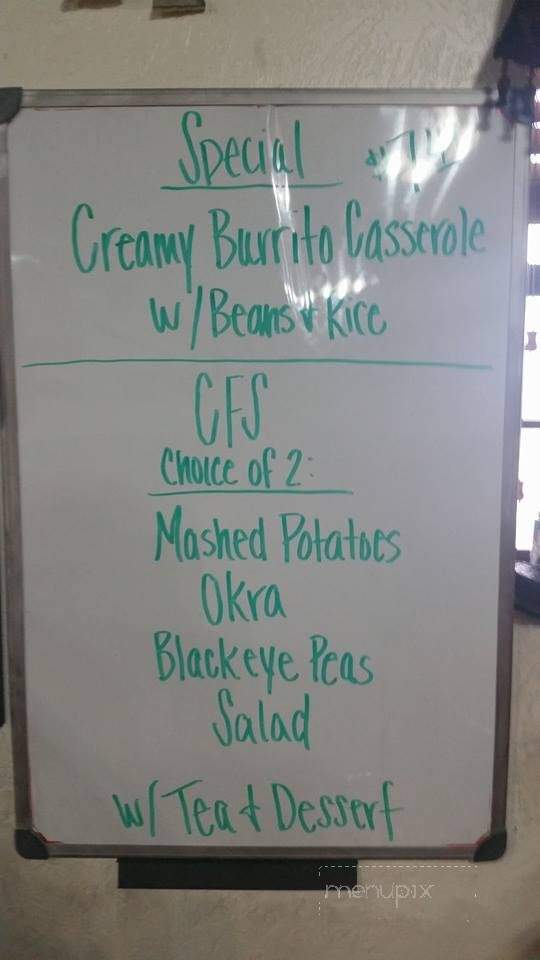 Special
Creamy Burrito Casserole
w/Beans & Rice
CFS
Choice of 2:
Mashed Potatoes
Okra
Blackeye Peas
Salad
w/ Tea & Dessert
menupix